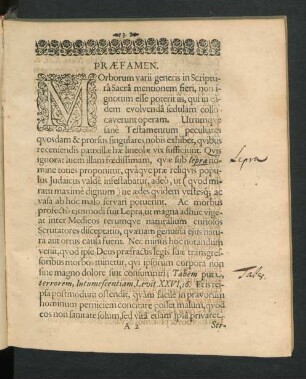 PRÆFAMEN.
MOrborum varii generis in Scriptu-
râ Sacrâ mentionem fieri, non i-
gnotum esse poterit iis, qui in ea-
dem evolvendâ sedulam collo-
caverunt operam. Utrumqve
sanè Testamentum peculiares
quosdam & prorsus singulares nobis exhibet, qvibus
recensendis patrissæ hæ lineolæ vix sufficiunt. Qvis
ignorat luem illam fœdissimam, quæ sub lepræ no-
mine tones proponitur, qvæqve præ reliqvis popu-
lus Judaicus valdè infestabatur, adeò, ut (quod mi-
ratu maximè dignum) nè ædes quidem vestesq; ac
vasa ab hoc malo servari potuerint. Ac morbus
profectò ejusmodi fuit Lepra, ut magna adhuc vige-
at inter Medicos rerumque naturalium curiosos
Scrutatores disceptatio, quænam genuina ejus natu-
ra aut ortus causa fuerit. Nec minus hoc notandum
venit, quod ipse Deus præfractis legis suæ transgres-
soribus morbos minetur, qvi ipsorum corpora non
sine magno dolore sint consumturi: Tabem puta,
terrorem, Intumescentiam, Levit. XXVI, 16. Et reipsâ
postmodum ostendit, quàm facile in pravorum
hominum perniciem concitare posset malum, quod
eos non sanitate solùm, sed vitâ etiam ipsâ privaret.
A 2
Lepra
Tabes